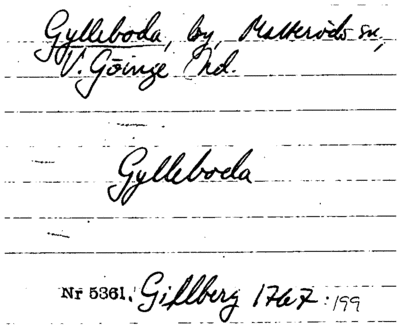 Gylleboda, by, Matteröds sn,
V. Göinge hd.
Gylleboda
Nr 5361. Gillberg 1767:199